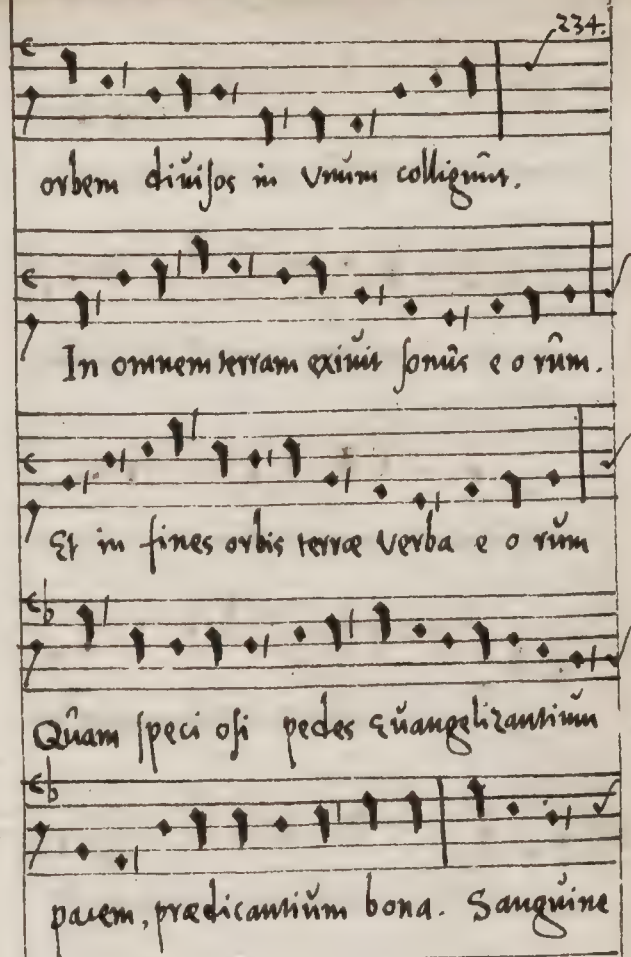 234.
orbem diuisos in vnum colligunt.
In omnem terram exiuit sonus e o rum.
Et in fines orbis terræ verba e o rum
Quam speci osi pedes euangelizantium
pacem, prædicantium bona. Sanguine